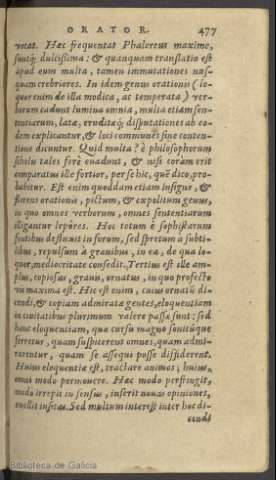 ORATOR. 477
vocat. Hæc frequentat Phalereus maximè,
suntq́; dulcissima: & quanquam translatio est
apud eum multa, tamen immutationes nus-
quam crebriores. In idem genus orationis (lo-
quor enim de illa modica, ac temperata) ver-
borum cadunt lumina omnia, multa etiam sen-
tentiarum, latæ, eruditæq́; disputationes ab eo-
dem explicantur, & loci communes sine conten-
tione dicuntur. Quid multa? è philosophorum
scholis tales ferè euadunt, & nisi coràm erit
comparatus ille fortior, per se hic, quẽ dico, pro-
babitur. Est enim quoddam etiam insigne, &
florens orationis, pictum, & expolitum genus,
in quo omnes verborum, omnes sententiarum
illigantur lepôres. Hoc totum è sophistarum
fontibus defluxit in forum, sed spretum à subti-
libus, repulsum à grauibus, in ea, de qua lo-
quor, mediocritate consedit. Tertius est ille am-
plus, copiosus, grauis, ornatus, in quo profectò
vis maxima est. Hic est enim, cuius ornatũ di-
cendi, & copiam admiratæ gentes, eloquentiam
in ciuitatibus plurimum valere passæ sunt: sed
hanc eloquentiam, quæ cursu magno sonitúque
ferretur, quam suspicerent omnes, quam admi-
rarentur, quam se assequi posse diffiderent.
Huius eloquentiæ est, tractare animos, huius,
omni modo permouere. Hæc modò perfringit,
modò irrepit in sensus, inserit nouas opiniones,
euellit insitas. Sed multum interest inter hoc di-
cendi
Biblioteca de Galicia